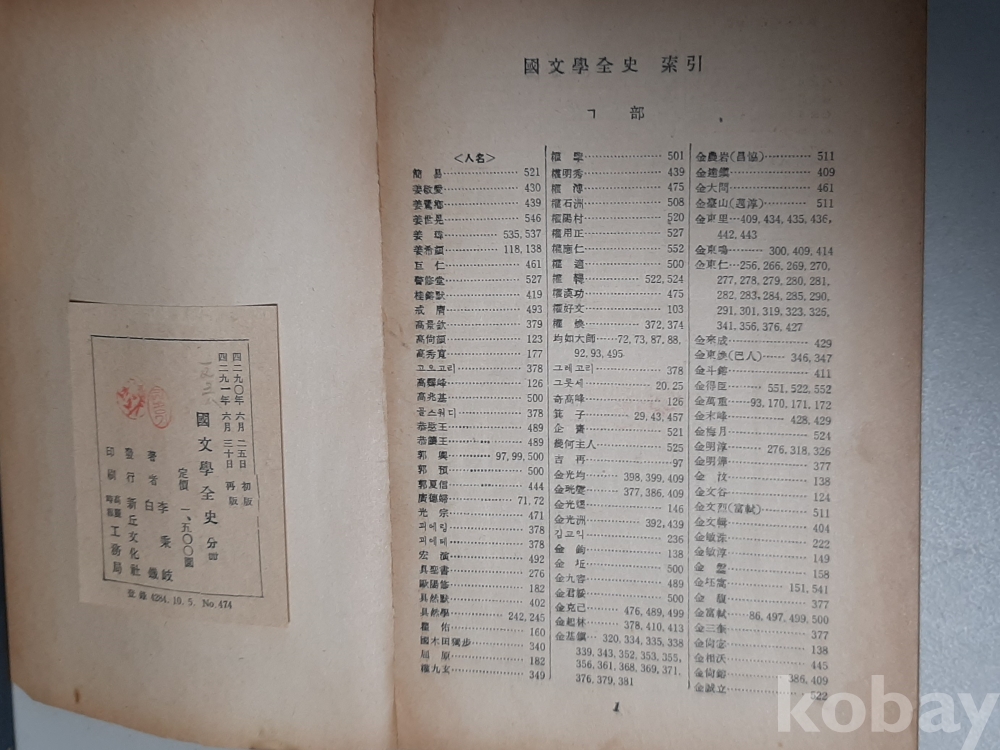 四二九〇年 六月 二五日 初版
四二九一年 六月 三十日 再版
國文學全史
定價 一、五〇〇圜
著者 李秉岐
白鐵
發行 新丘文化社
印刷
工務局
登錄 4284.10.5. No.474
國文學全史 索引
ㄱ 部
<人名>
簡易 521
姜敬愛 430
姜鷺鄕 439
姜世晃 546
姜瑋 535,537
姜希顔 118,138
巨仁 461
警影堂 527
桂鎔默 419
戒膺 493
高景欽 379
高尙顔 123
高秀寬 177
고오고리 378
高驛峰 126
高兆基 500
골스워디 378
恭愍王 489
恭讓王 489
郭輿 97,99,500
郭預 500
郭夏信 444
廣德 71,72
光宗 471
괴에링 378
괴에테 378
宏演 492
具聖書 276
歐陽修 182
具然默 402
具然學 242,245
瞿佑 160
國木田獨步 340
屈原 182
權九玄 349
權擥 501
權明秀 439
權溥 475
權石洲 508
權陽村 520
權用正 527
權應仁 552
權適 500
權韠 522,524
權漢功 475
權好文 103
權煥 372,374
均如大師 72,73,87,88,
92,93,495
그레고리 378
그롯세 20,25
奇高峰 126
箕子 29,43,457
企齋 521
幾何主人 525
吉再 97
金光均 398,399,409
金珖燮 377,386,409
金光煜 146
金光洲 392,439
김교익 236
金鉤 138
金坵 500
金九容 489
金君綏 500
金克己 476,489,499
金起林 378,410,413
金基鎭 320,334,335,338
339,343,352,353,355,
356,361,368,369,371,
376,379,381
金農岩(昌協) 511
409
金大問 461
金臺山(邁淳) 511
金東里 409,434,435,436,
442,443
金東鳴 300,409,414
金東仁 256,266,269,270,
277,278,279,280,281,
282,283,284,285,290,
291,301,319,323,326,
341,356,376,427
金來成 429
金東煥(巴人) 346,347
金斗鎔 411
金得臣 551,522,552
金萬重 93,170,171,172
金末峰 428,429
金梅月 524
金明淳 276,318,326
377
金汶 138
金文谷 124
金文烈(富軾) 511
金文輯 404
222
金敏淳 149
金盤 158
金坯窩 151,541
377
金富軾 86,497,499,500
金三奎 377
金尙宓 138
金相沃 445
金尙鎔 386,409
金誠立 522
1
kobay